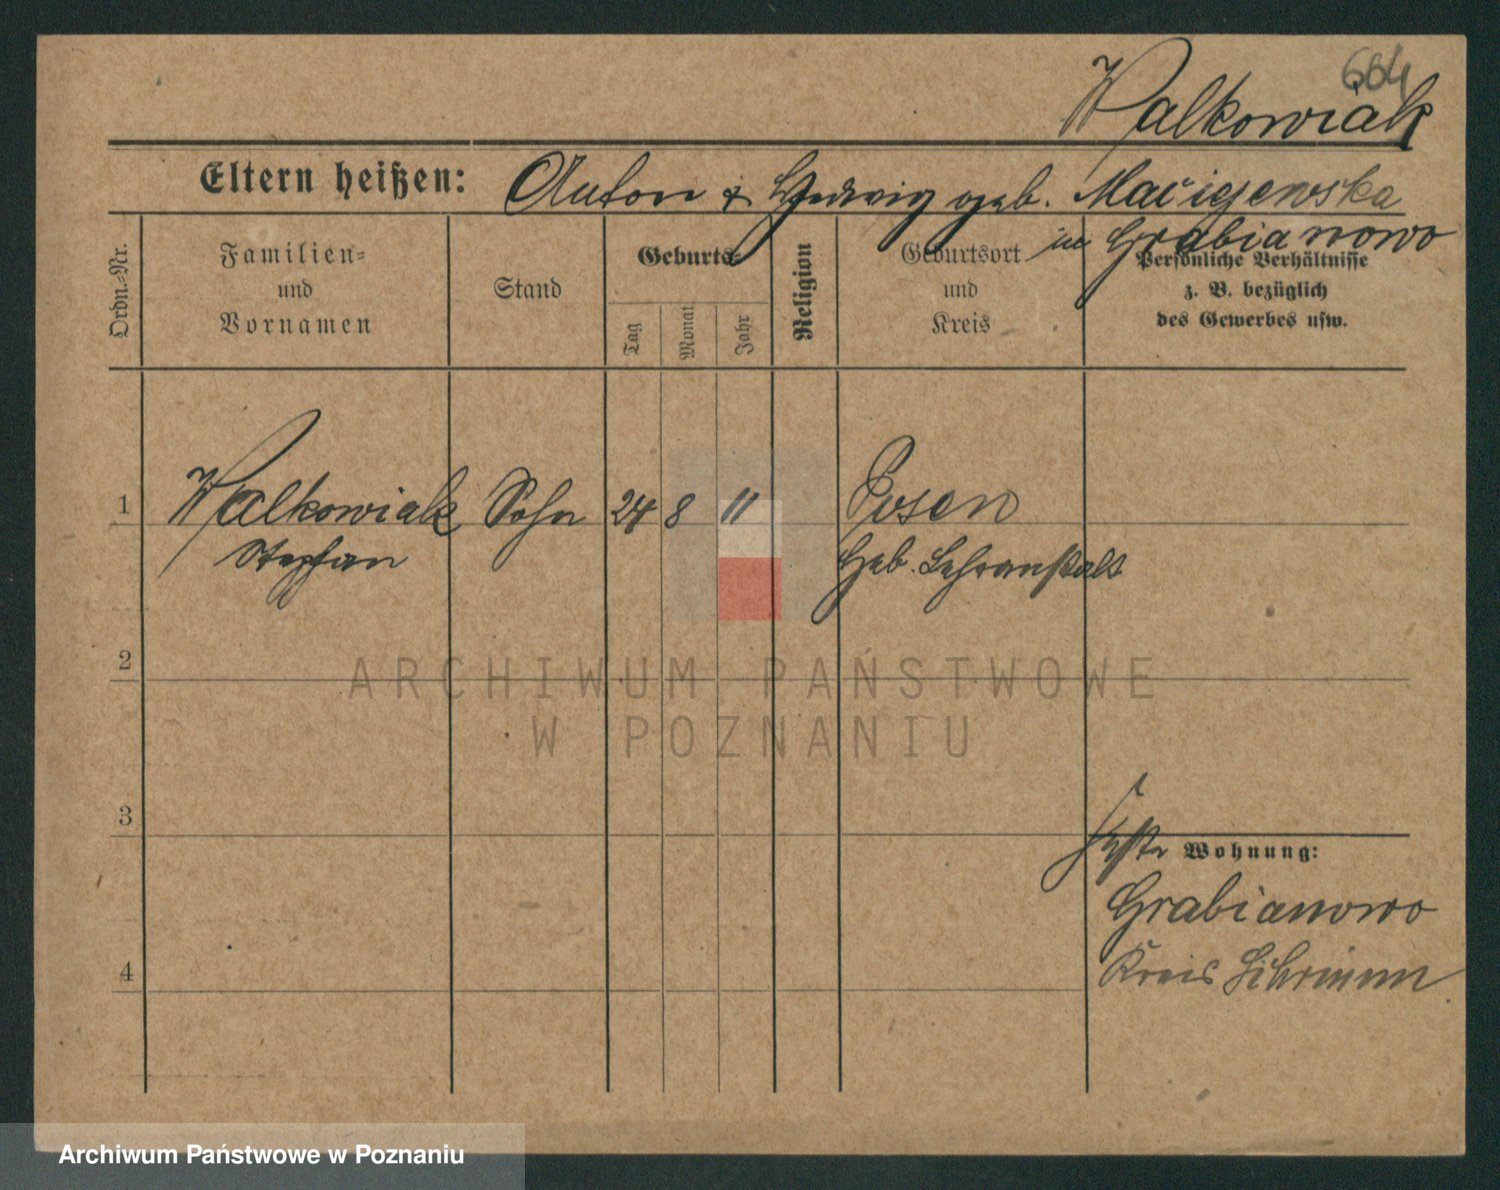 664
Walkowiak
Eltern heißen: Anton & Hedwig geb. Maciejewska
in Grabianowo
Ordn.-Nr.
Familien-
und
Vornamen
Stand
Geburts-
Tag
Monat
Jahr
Religion
Geburtsort
und
Kreis
Persönliche Verhältnisse
z. B. bezüglich
des Gewerbes usw.
1 Walkowiak Sohn 24 8 11 Posen
Stephan Heb. Lehranstalt
ARCHIWUM PAŃSTWOWE
W POZNANIU
2
3
Wohnung:
Grabianowo
4 Kreis Schrimm
Archiwum Państwowe w Poznaniu